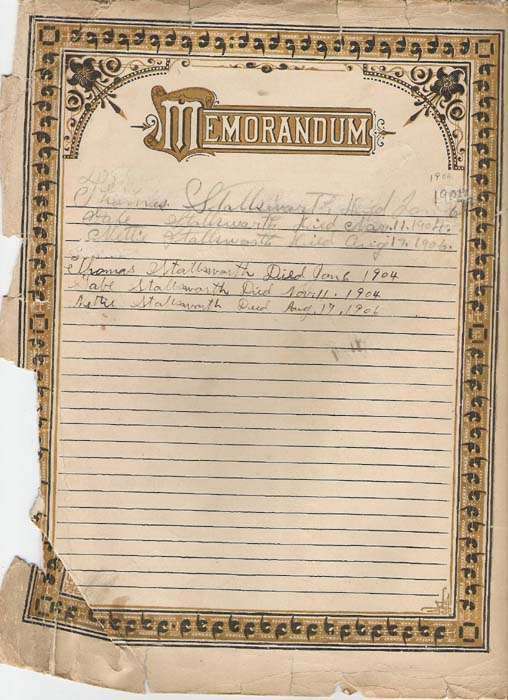 MEMORANDUM
1904
Thomas Stallsworth Died Jan 6
Gabe Stallsworth Died Nov. 11. 1904.
Nettie Stallsworth Died Aug 17. 1906.
Thomas Stallsworth Died Jan 6 1904
Gabe Stallsworth Died Nov. 11. 1904
Nettie Stallsworth Died Aug, 17, 1906